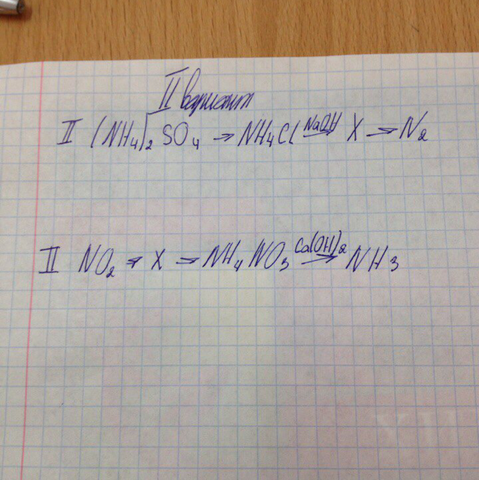 II вариант
II (NH4)2 SO4 → NH4Cl NaOH→ X → N2
II NO2 → X → NH4NO3 Ca(OH)2→ NH3